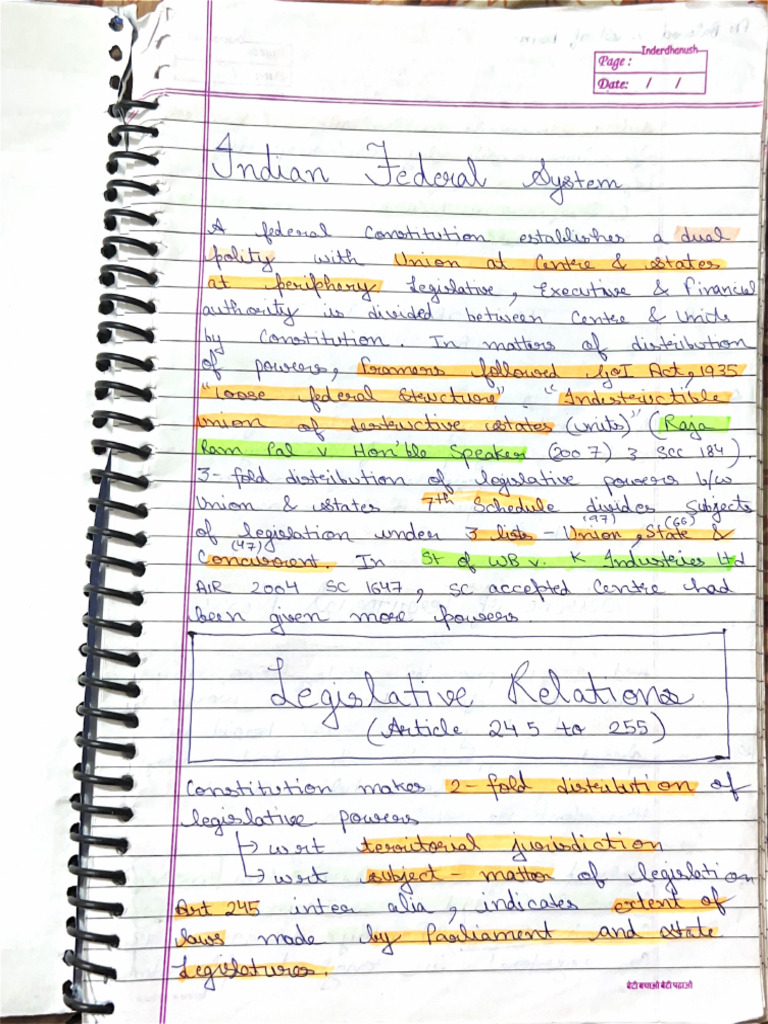 Inderdhanush
Page :
Date: / /
Indian Federal System
A federal Constitution establishes a dual
polity with Union at Centre & States
at periphery Legislative, Executive & Financial
authority is divided between Centre & Units
by Constitution. In matters of distribution
of powers, framers followed GoI Act, 1935
"Loose federal structure" "Indestructible
union of destructive states (units)" (Raja
Ram Pal v Hon'ble Speaker (2007) 3 SCC 184).
3-fold distribution of legislative powers b/w
Union & States 7th Schedule divides subjects
of legislation under 3 lists - Union (97), State (66) &
Concurrent. (47) In St of WB v. K Industries Ltd
AIR 2004 SC 1647, SC accepted Centre had
been given more powers.
Legislative Relations
(Article 245 to 255)
Constitution makes 2-fold distribution of
legislative powers
→ wrt territorial jurisdiction
→ wrt subject-matter of legislation
Art 245 inter alia, indicates extent of
laws made by Parliament and State
Legislatures.
बेटी बचाओ बेटी पढ़ाओ